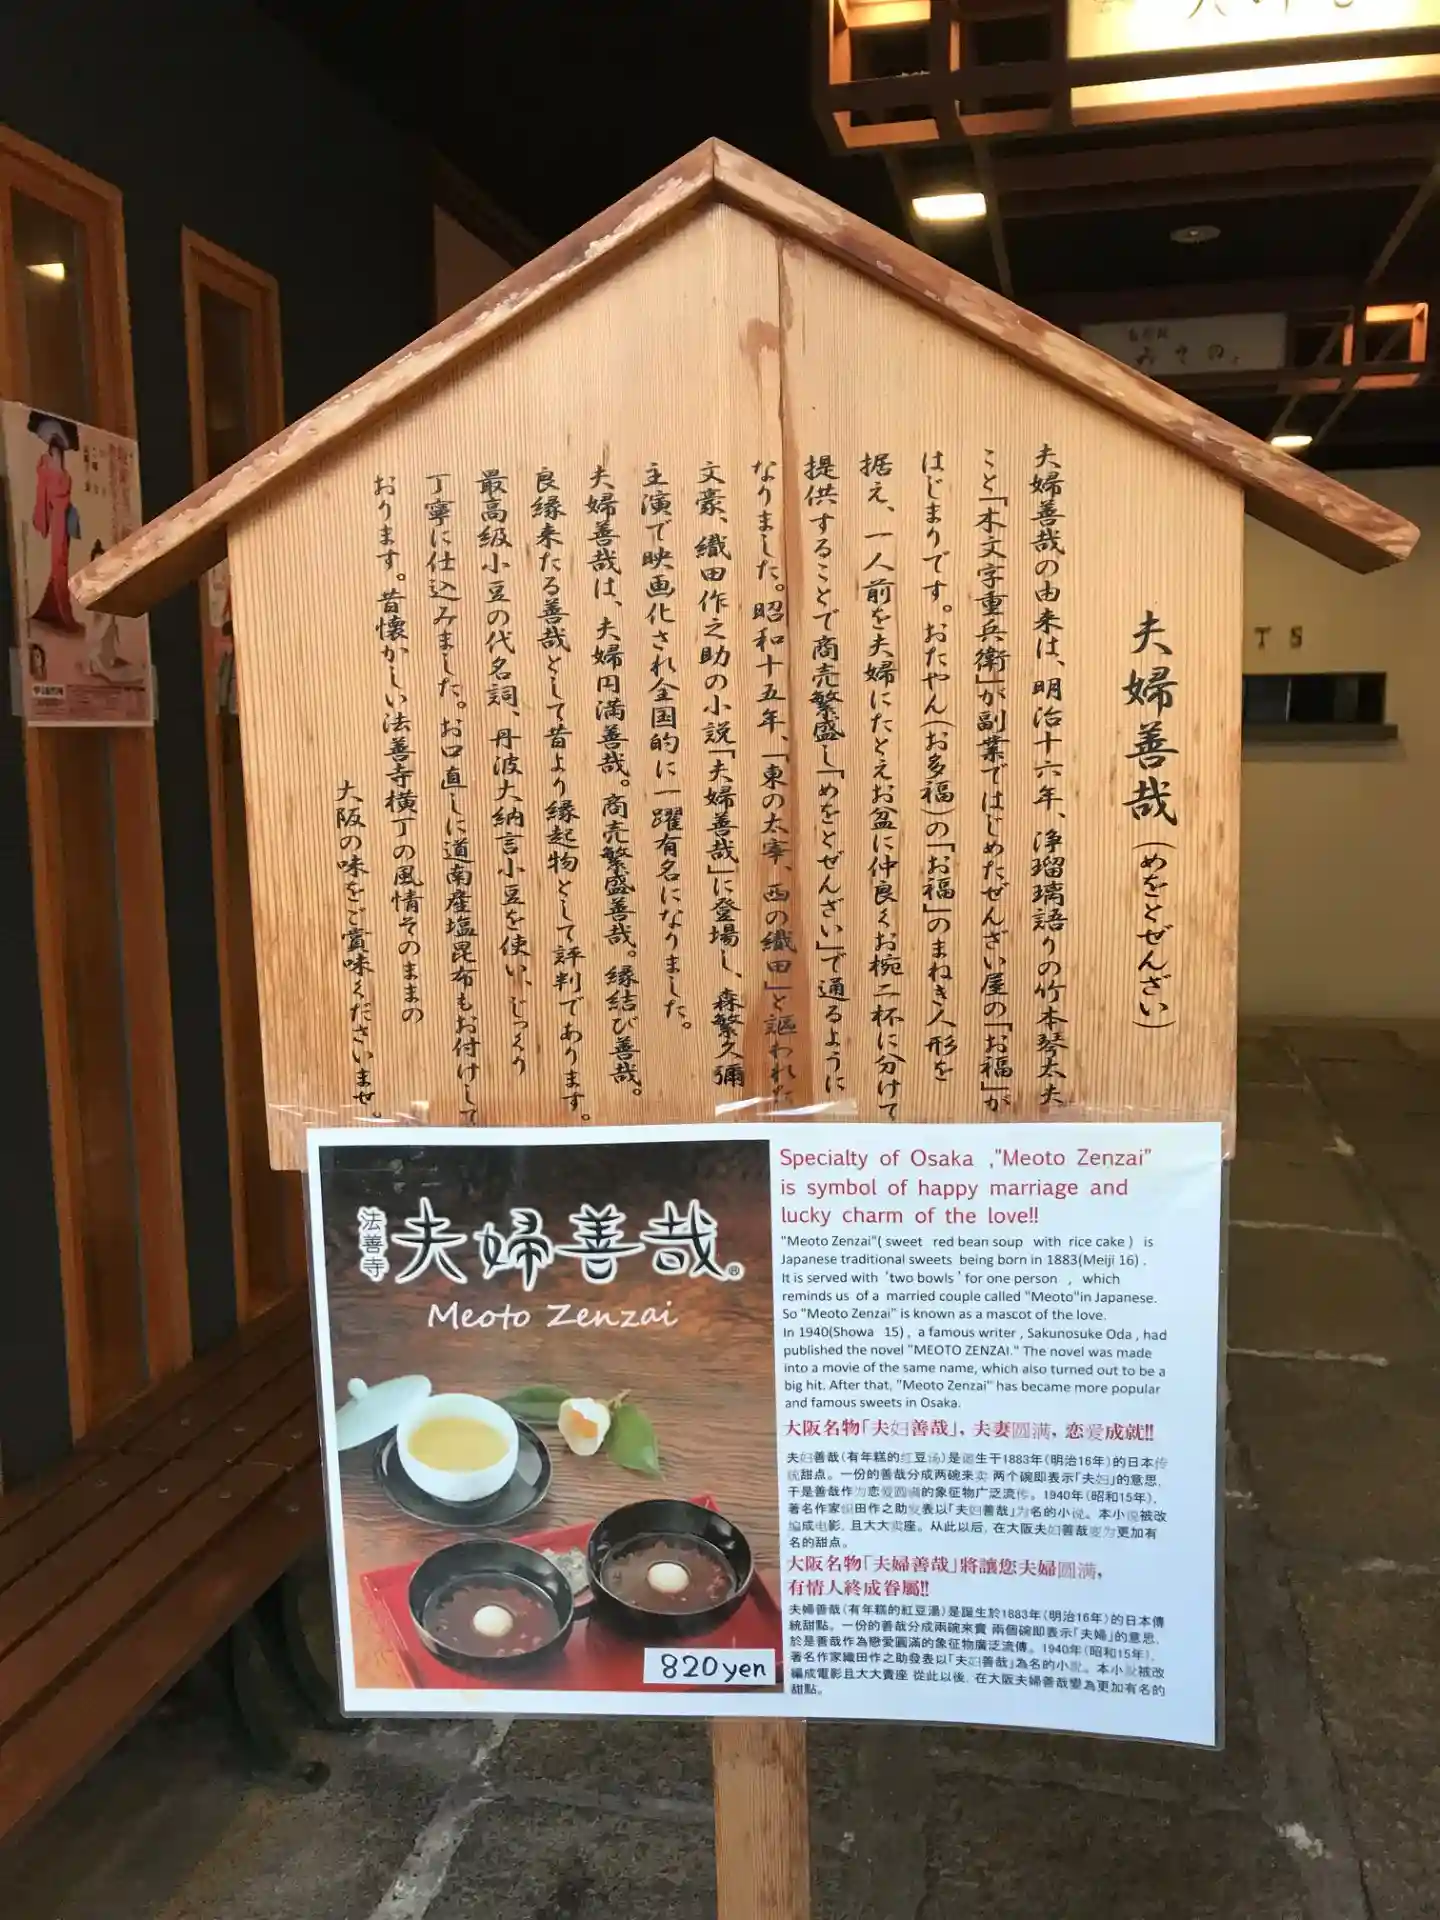 夫婦善哉（めをとぜんざい）
夫婦善哉の由来は、明治十六年、浄瑠璃語りの竹本琴太夫
こと「木文字重兵衛」が副業ではじめたぜんざい屋の「お福」が
はじまりです。おたやん（お多福）の「お福」のまねき人形を
据え、一人前を夫婦にたとえお盆に仲良くお椀二杯に分けて
提供することで商売繁盛し「めをとぜんざい」で通るように
なりました。昭和十五年、「東の太宰、西の織田」と謳われた
文豪、織田作之助の小説「夫婦善哉」に登場し、森繁久彌
主演で映画化され全国的に一躍有名になりました。
夫婦善哉は、夫婦円満善哉。商売繁盛善哉。縁結び善哉。
良縁来たる善哉として昔より縁起物として評判であります。
最高級小豆の代名詞、丹波大納言小豆を使い、じっくり
丁寧に仕込みました。お口直しに道南産塩昆布もお付けして
おります。昔懐かしい法善寺横丁の風情そのままの
大阪の味をご賞味くださいませ。
法善寺 夫婦善哉®
Meoto Zenzai
820yen
Specialty of Osaka ,"Meoto Zenzai"
is symbol of happy marriage and
lucky charm of the love!!
"Meoto Zenzai"( sweet red bean soup with rice cake ) is
Japanese traditional sweets being born in 1883(Meiji 16) .
It is served with ‘two bowls ’ for one person , which
reminds us of a married couple called "Meoto"in Japanese.
So "Meoto Zenzai" is known as a mascot of the love.
In 1940(Showa 15) , a famous writer , Sakunosuke Oda , had
published the novel "MEOTO ZENZAI." The novel was made
into a movie of the same name, which also turned out to be a
big hit. After that, "Meoto Zenzai" has became more popular
and famous sweets in Osaka.
大阪名物「夫妇善哉」，夫妻圆满，恋爱成就!!
夫妇善哉（有年糕的红豆汤）是诞生于1883年（明治16年）的日本传
统甜点。一份的善哉分成两碗来卖 两个碗即表示「夫妇」的意思，
于是善哉作为恋爱圆满的象征物广泛流传。1940年（昭和15年），
著名作家织田作之助发表以「夫妇善哉」为名的小说。本小说被改
编成电影，且大大卖座。从此以后，在大阪夫妇善哉变为更加有
名的甜点。
大阪名物「夫婦善哉」將讓您夫婦圆满，
有情人終成眷屬!!
夫婦善哉（有年糕的紅豆湯）是誕生於1883年（明治16年）的日本傳
統甜點。一份的善哉分成兩碗來賣 兩個碗即表示「夫婦」的意思，
於是善哉作為戀愛圓滿的象征物廣泛流傳。1940年（昭和15年），
著名作家織田作之助發表以「夫妇善哉」為名的小说。本小说被改
編成電影且大大賣座 從此以後，在大阪夫婦善哉變為更加有名的
甜點。
みその
TS